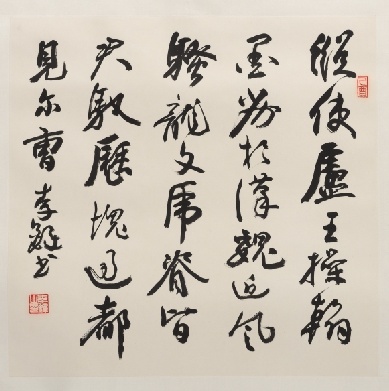 縱使盧王操翰
墨劣於漢魏近風
騷龍文虎脊皆
君馭歷塊過都
見尔曹 李鐸书